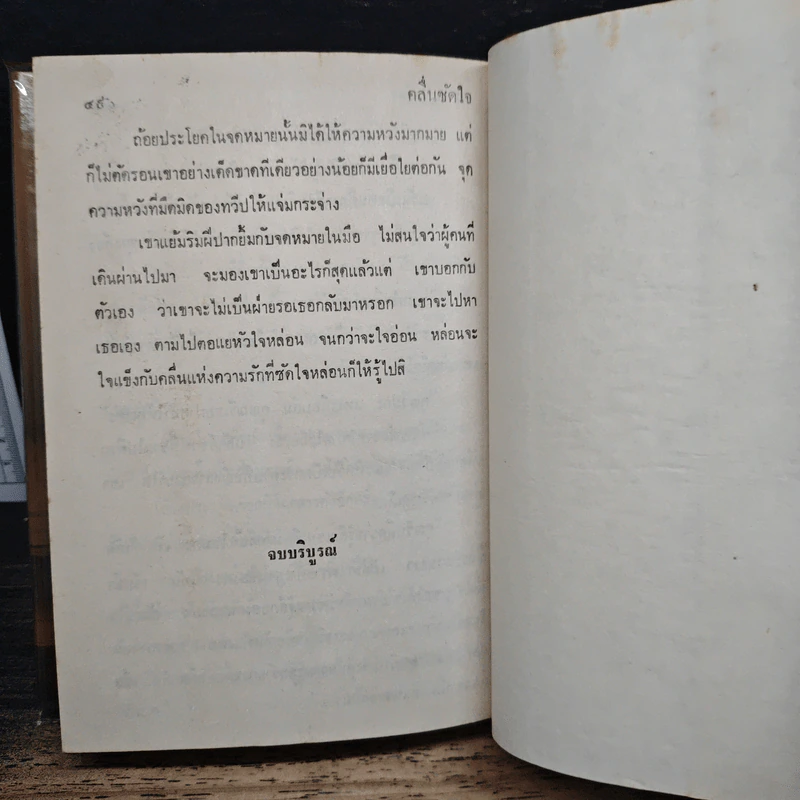 คลื่นซัดใจ
ถ้อยประโยคในจดหมายนั้นมิได้ให้ความหวังมากมาย แต่
ก็ไม่ตัดรอนเขาอย่างเด็ดขาดทีเดียวอย่างน้อยก็มีเยื่อใยต่อกัน จุด
ความหวังที่มืดมิดของทวีปให้แจ่มกระจ่าง
เขาแย้มริมฝีปากยิ้มกับจดหมายในมือ ไม่สนใจว่าผู้คนที่
เดินผ่านไปมา จะมองเขาเป็นอะไรก็สุดแล้วแต่ เขาบอกกับ
ตัวเอง ว่าเขาจะไม่เป็นฝ่ายรอเธอกลับมาหรอก เขาจะไปหา
เธอเอง ตามไปตอแยหัวใจหล่อน จนกว่าจะใจอ่อน หล่อนจะ
ใจแข็งกับคลื่นแห่งความรักที่ซัดใจหล่อนก็ให้รู้ไปสิ
จบบริบูรณ์